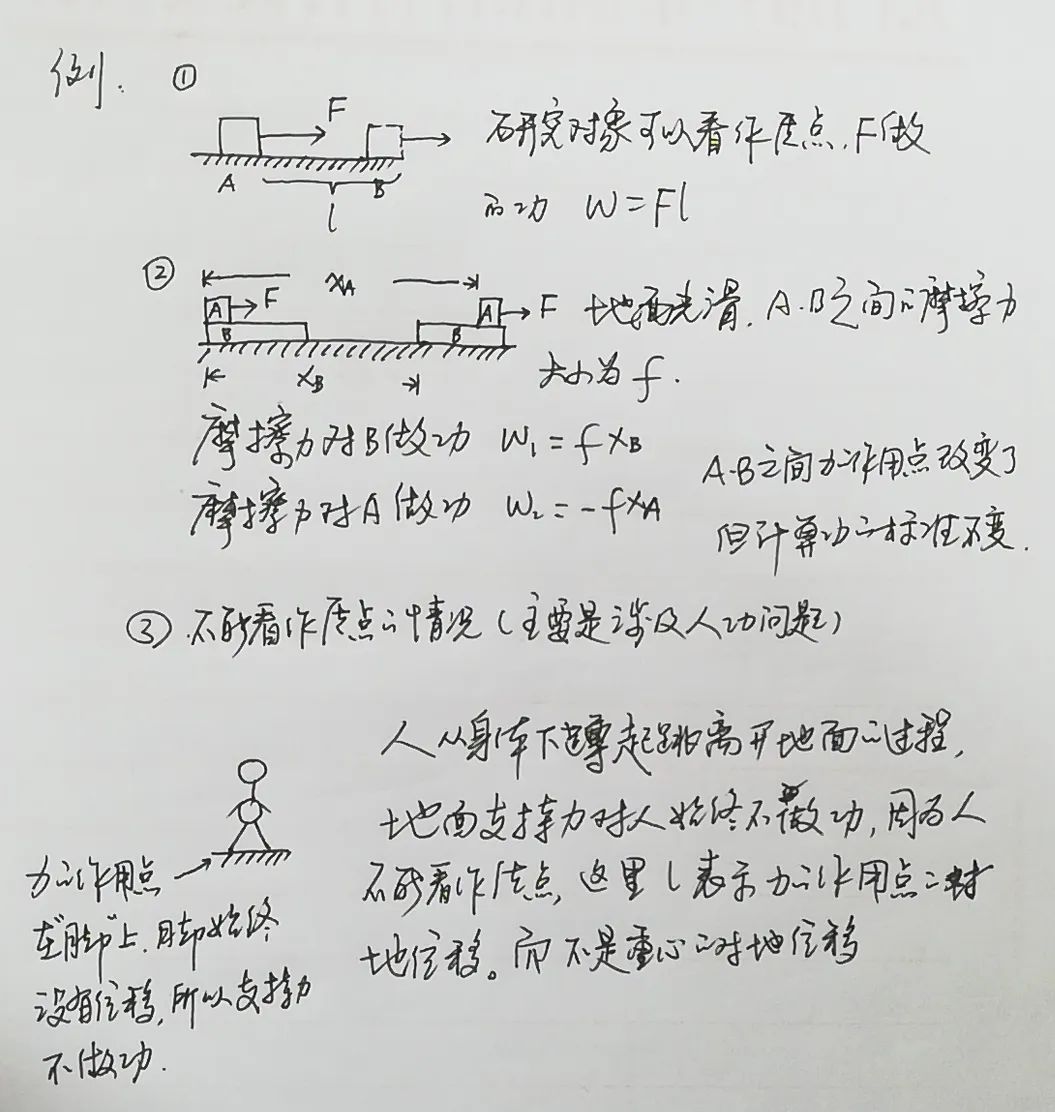 例. ①
F
A B
l
研究对象可以看作质点, F做
的功 W=Fl
②
xA
A F A F
B B
xB
地面光滑, A.B之间的摩擦力
大小为 f.
摩擦力对B做功 W₁=fxB
摩擦力对A做功 W₂=-fxA
A.B之间力的作用点改变了
但计算功的标准不变.
③ 不能看作质点的情况(主要是涉及人的问题)
人从身体下蹲起跳离开地面的过程,
地面支持力对人始终不做功, 因为人
不能看作质点, 这里l表示力的作用点的对
地位移。而不是重心的对地位移
力的作用点
在"脚"上, 脚始终
没有位移, 所以支持力
不做功.